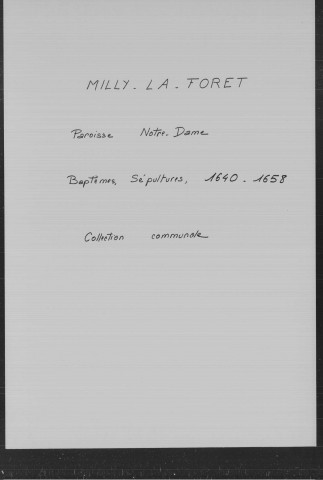 MILLY - LA - FORET
Paroisse Notre-Dame
Baptêmes, Sépultures, 1640 - 1658
Collection communale